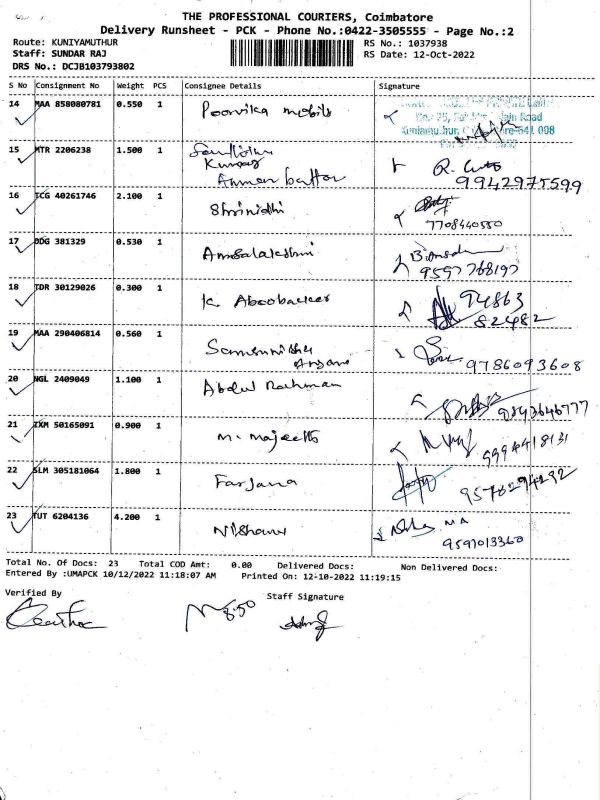 THE PROFESSIONAL COURIERS, Coimbatore
Delivery Runsheet - PCK - Phone No.:0422-3505555 - Page No.:2
Route: KUNIYAMUTHUR RS No.: 1037938
Staff: SUNDAR RAJ RS Date: 12-Oct-2022
DRS No.: DCJB103793802
S No Consignment No Weight PCS Consignee Details Signature
14 MAA 858080781 0.550 1 Poorvika mobile
Main Road
641 008
15 MTR 2206238 1.500 1
9942975599
16 TCG 40261746 2.100 1 Shrinidhi
7708440550
17 DDG 381329 0.530 1
9597768197
18 TDR 30129026 0.300 1 K. Aboobacker 94863
82482
19 MAA 290406814 0.560 1
9786093608
20 NGL 2409049 1.100 1 Abdul Rahman
9843646777
21 IXM 50165091 0.900 1 M. Majeeth
9994418131
22 SLM 305181064 1.800 1 Farjana
9578294292
23 TUT 6204136 4.200 1
9597013360
Total No. Of Docs: 23 Total COD Amt: 0.00 Delivered Docs: Non Delivered Docs:
Entered By :UMAPCK 10/12/2022 11:18:07 AM Printed On: 12-10-2022 11:19:15
Verified By Staff Signature
8.50